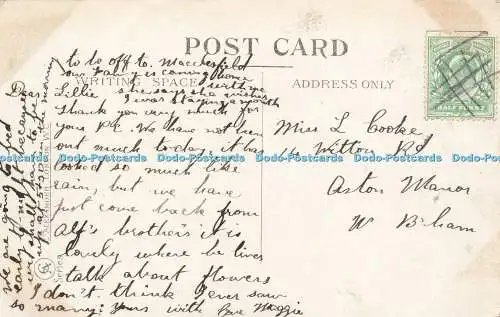 POST CARD
WRITING SPACE
ADDRESS ONLY
HALFPENNY
Dear Lillie
Thank you very much for
your P.C. We have not been
out much to day, it has
looked so much like
rain, but we have
just come back from
Alf's brother's it is
lovely where he lives
talk about flowers
I don't think I ever saw
so many: yours with love Maggie
to go off to Macclesfield
our Fanny is coming home
with me
she says she wishes
I was staying a month
We are going to bed
early
Miss L Cooke
Witton Rd
Aston Manor
W B'ham
Series
Dodo-Postcards Dodo-Postcards Dodo-Postcards Dodo-Postcards Dodo-Postcards